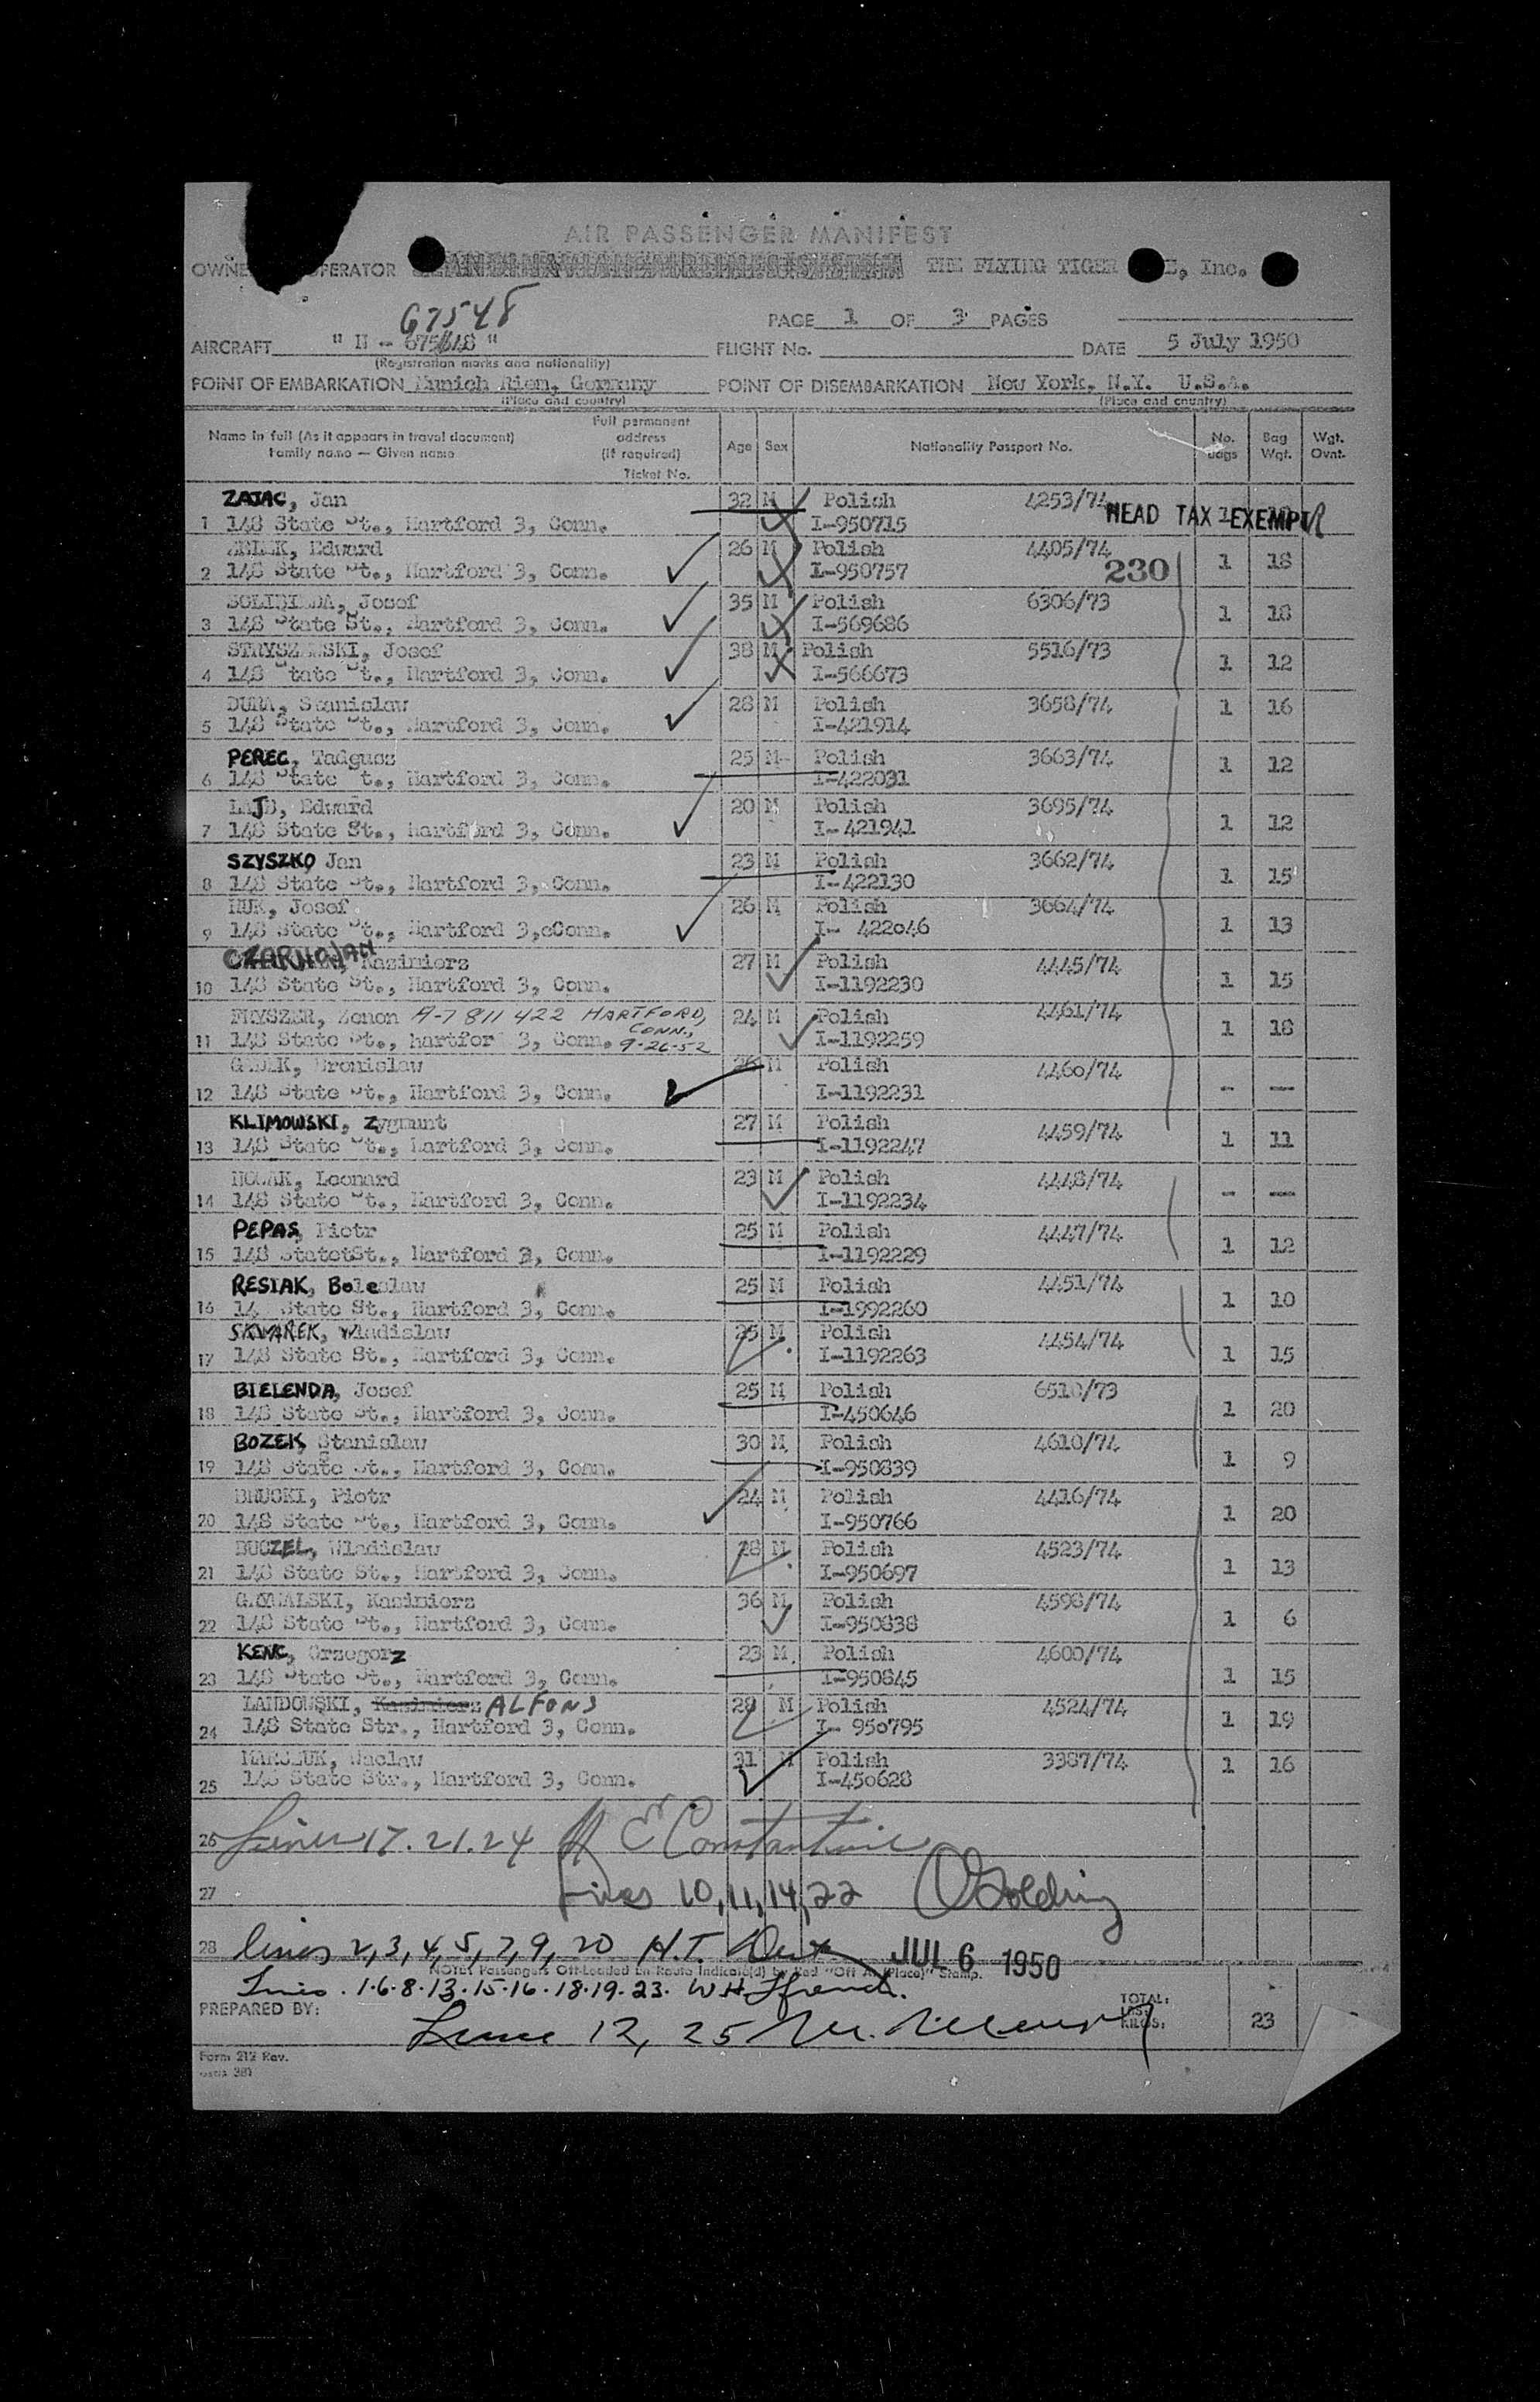 AIR PASSENGER MANIFEST
OPERATOR THE FLYING TIGER E, Inc.
67548
PAGE 1 OF 3 PAGES
AIRCRAFT FLIGHT No. DATE 5 July 1950
(Registration marks and nationality)
POINT OF EMBARKATION Munich Riem, Germany POINT OF DISEMBARKATION New York, N.Y. U.S.A.
(Place and country) (Place and country)
Name in full (As it appears in travel document) Family name — Given name Full permanent address (if required) Ticket No. Age Sex Nationality Passport No. No. Bags Bag Wgt. Wgt. Ovnt.
ZAJAC, Jan 32 M Polish 4253/74 HEAD TAX EXEMPT
1 148 State St., Hartford 3, Conn. I-950715
Edward 26 M Polish 4405/74 230
2 148 State St., Hartford 3, Conn. I-950757 1 18
Josef 35 M Polish 6306/73
3 148 State St., Hartford 3, Conn. I-569686 1 18
Josef 38 M Polish 5516/73
4 148 State St., Hartford 3, Conn. I-566673 1 12
DURA, Stanislaw 28 M Polish 3658/74 1 16
5 148 State St., Hartford 3, Conn. I-421914
PEREC, Tadgusz 25 M Polish 3663/74 1 12
6 148 State t., Hartford 3, Conn. I-422031
Edward 20 M Polish 3695/74
7 148 State St., Hartford 3, Conn. I-421941 1 12
SZYSZKO Jan 23 M Polish 3662/74
8 148 State St., Hartford 3, Conn. I-422130 1 15
Josef 26 M Polish 3664/74
9 148 State St., Hartford 3,eConn. I- 422046 1 13
CZARNOJAN Kazimierz 27 M Polish 4445/74
10 148 State St., Hartford 3, Conn. I-1192230 1 15
FRYSZER, Zenon A-7 811 422 HARTFORD, CONN., 9-26-52 24 M Polish 4461/74
11 148 State St., hartfor 3, Conn. I-1192259 1 18
Bronislaw 26 M Polish 4460/74
12 148 State St., Hartford 3, Conn. I-1192231 - --
KLIMOWSKI, Zygmunt 27 M Polish 4459/74
13 148 State St., Hartford 3, Conn. I-1192247 1 11
NOWAK, Leonard 23 M Polish 4448/74
14 148 State St., Hartford 3, Conn. I-1192234 - --
PEPAS, Piotr 25 M Polish 4447/74
15 148 StatetSt., Hartford 3, Conn. I-1192229 1 12
RESIAK, Boleslaw 25 M Polish 4451/74
16 14 State St., Hartford 3, Conn. I-1992260 1 10
SKWAREK, Wladislaw 25 M Polish 4454/74
17 148 State St., Hartford 3, Conn. I-1192263 1 15
BIELENDA, Josef 25 M Polish 6510/73
18 148 State St., Hartford 3, Conn. I-450646 1 20
BOZEK, Stanislaw 30 M Polish 4610/74
19 148 State St., Hartford 3, Conn. I-950839 1 9
BRUCKI, Piotr 24 M Polish 4416/74
20 148 State St., Hartford 3, Conn. I-950766 1 20
BUCZEL, Wladislaw 28 M Polish 4523/74
21 148 State St., Hartford 3, Conn. I-950697 1 13
Kazimierz 36 M Polish 4598/74
22 148 State St., Hartford 3, Conn. I-950838 1 6
KENC, Grzegorz 23 M Polish 4600/74
23 148 State St., Hartford 3, Conn. I-950845 1 15
LANDOWSKI, Kazimierz ALFONS 28 M Polish 4524/74
24 148 State Str., Hartford 3, Conn. I- 950795 1 19
Waclaw 31 M Polish 3387/74 1 16
25 148 State Str., Hartford 3, Conn. I-450628
26 Lines 17. 21. 24 E Constantine
27 Lines 10, 11, 14, 22 Golding
28 lines 2, 3, 4, 5, 7, 9, 20 H.T. JUL 6 1950
NOTE: Passengers Off-Loaded En Route Indicate(d) by Red "Off At (Place)" Stamp.
Lines . 1-6-8-13-15-16-18-19-23. W H Ffrench.
PREPARED BY: TOTAL: LBS. KILOS: 23
Line 12, 25
Form 212 Rev.